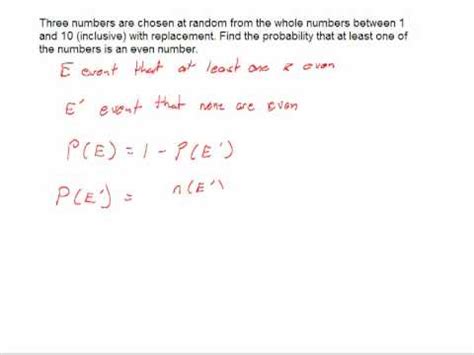 Three numbers are chosen at random from the whole numbers between 1
and 10 (inclusive) with replacement. Find the probability that at least one of
the numbers is an even number.
E event that at least one is even
E' event that none are even
P(E) = 1 - P(E')
P(E') = n(E')